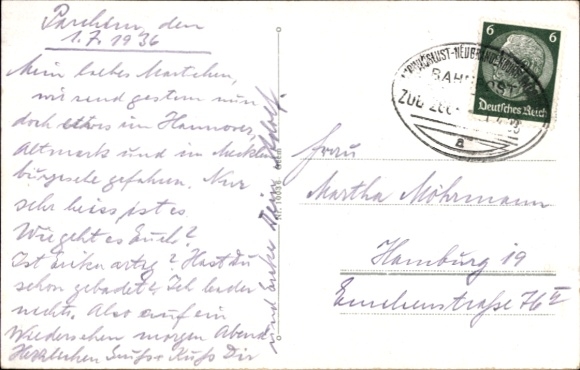 Parchim den
1.7.1936
Mein liebes Martchen,
wir sind gestern nun
doch etwas im Hannover,
Altmark und im Mecklen
burgische gefahren. Nur
sehr heiss ist es.
Wie geht es Euch?
Ist Erika artig? Hast Du
schon gebadet? Ich leider
nicht. Also auf ein
Wiedersehen morgen Abend
Herzlichen Gruss + Kuss Dir
und Erika Dein Adolf.
Frau
Martha Möhrmann
Hamburg 19
Emilienstraße 76 II
LUDWIGSLUST-NEUBRANDENBURG
BAHNPOST
ZUG
a
6 6
Deutsches Reich